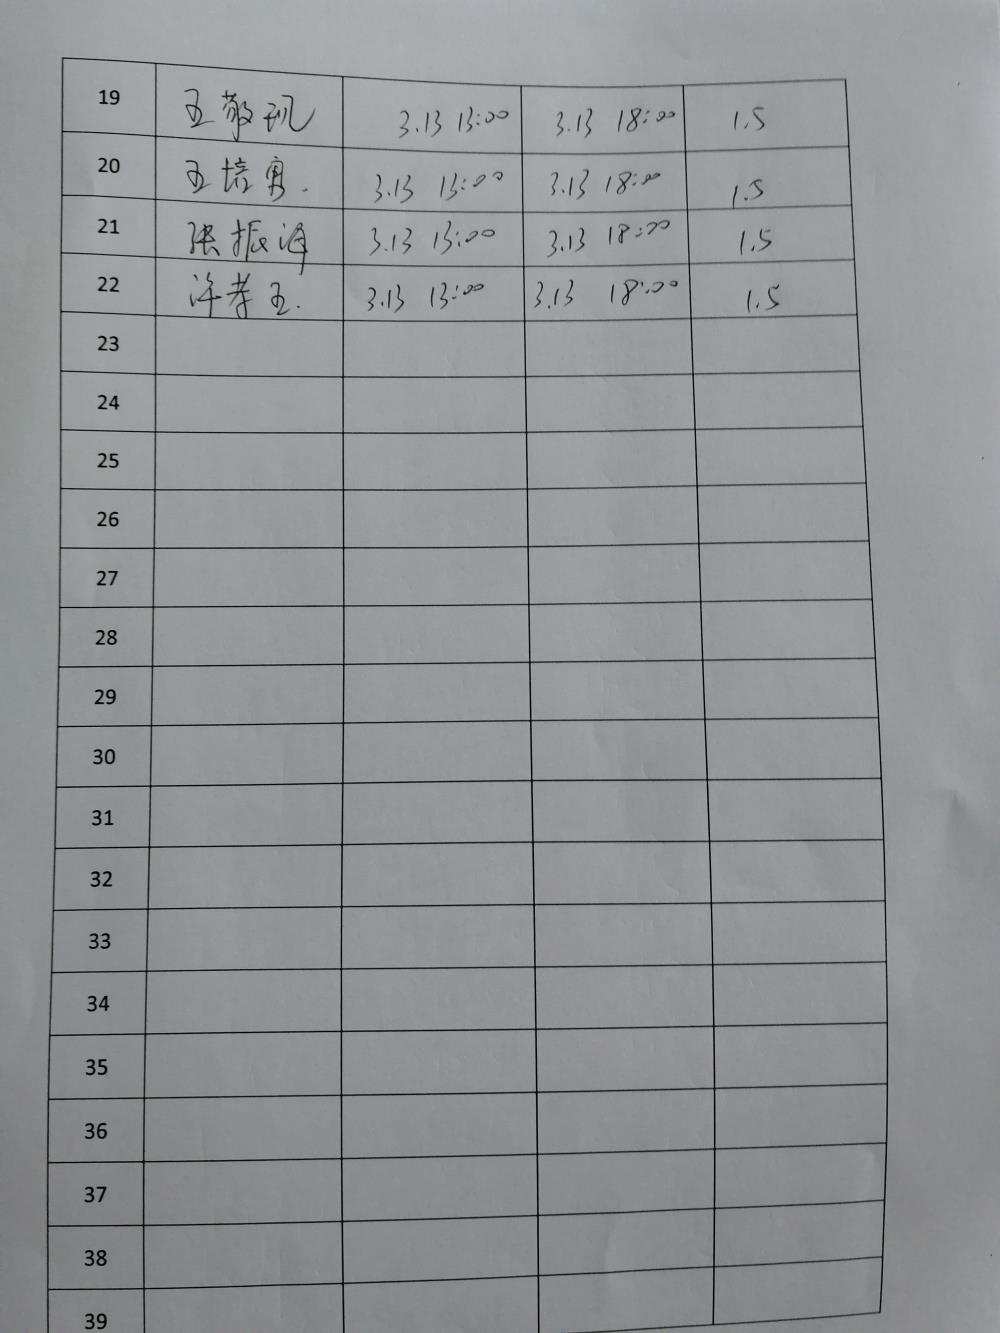 19 王敬凯 3.13 13:00 3.13 18:00 1.5
20 王培勇. 3.13 13:00 3.13 18:00 1.5
21 张振海 3.13 13:00 3.13 18:00 1.5
22 许孝玉. 3.13 13:00 3.13 18:00 1.5
23
24
25
26
27
28
29
30
31
32
33
34
35
36
37
38
39